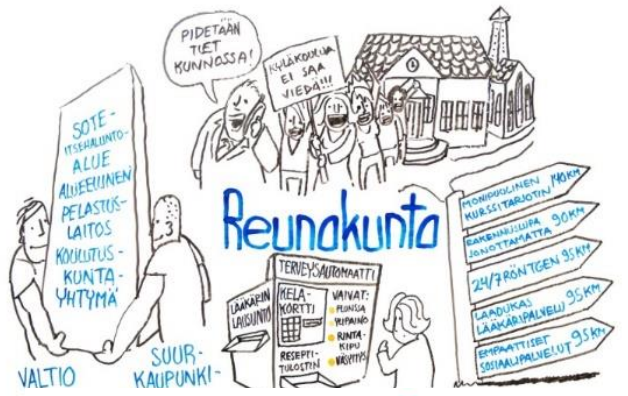 PIDETÄÄN
TIET
KUNNOSSA!
KYLÄKOULUA
EI SAA
VIEDÄ!!!
SOTE-
ITSEHALLINTO-
ALUE
ALUEELLINEN
PELASTUS-
LAITOS
KOULUTUS-
KUNTA-
YHTYMÄ
VALTIO
SUUR-
KAUPUNKI-
Reunakunta
TERVEYSAUTOMAATTI
LÄÄKÄRIN
LAUSUNTO
KELA-
KORTTI
RESEPTI-
TULOSTIN
VAIVAT:
FLUNSSA
YLIPAINO
RINTA-
KIPU
VÄSYMYS
MONIPUOLINEN 140 KM
KURSSITARJOTIN
RAKENNUSLUPA 90 KM
JONOTTAMATTA
24/7 RÖNTGEN 95 KM
LAADUKAS 95 KM
LÄÄKÄRIPALVELU
EMPAATTISET 95 KM
SOSIAALIPALVELUT